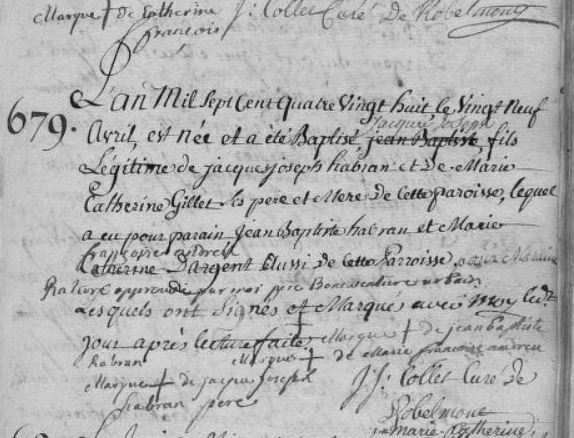 Marque + de Catherine J: J: Collet Curé De Robelmont
francois
679. L'an Mil Sept Cent quatre Vingt huit le Vingt Neuf
jacque joseph
Avril, est née et a été Baptisé jean Baptiste, fils
Légitime de jacque joseph habran et De Marie
Catherine Gillet Ses pere et Mere de Cette paroisse, lequel
a eu pour parain Jean Baptiste habran et Marie
francoise andreu
Catherine D'argent Aussi de Cette Parroisse pour Maraine
Rature approuvée par moi
Lesquels ont Signés et Marqués avec Moy led:
jour après lecture faite Marque + de jean Baptiste
habran Marque + de Marie francoise andreu
Marque + de jacque joseph J: J: Collet Curé de
habran pere Robelmont
marie Catherine